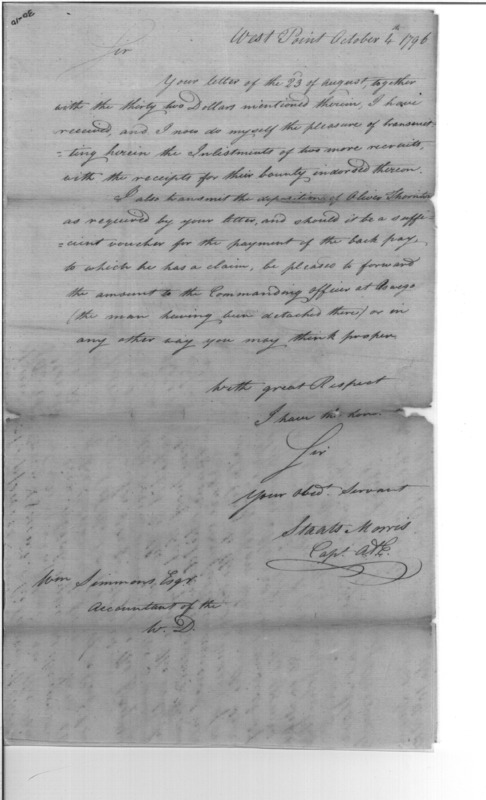 West Point October 4th 1796
Sir
Your letter of the 23 of august, together
with the thirty two Dollars mentioned therein, I have
received, and I now do myself the pleasure of transmit-
-ting herein the Inlistments of two more recruits,
with the receipts for their bounty indorsed thereon.
I also transmit the deposition of Oliver
as required by your letter, and should it be a suffi-
-cient voucher for the payment of the back pay
to which he has a claim, be pleased to forward
the amount to the Commanding Officer at Oswego
(the man having been detached there) or in
any other way you may think proper.
With great Respect
I have the honor
Sir
Your Obedt. Servant
Staats Morris
Capt. A&E.
Wm Simmons, Esqr.
Accountant of the
W. D.